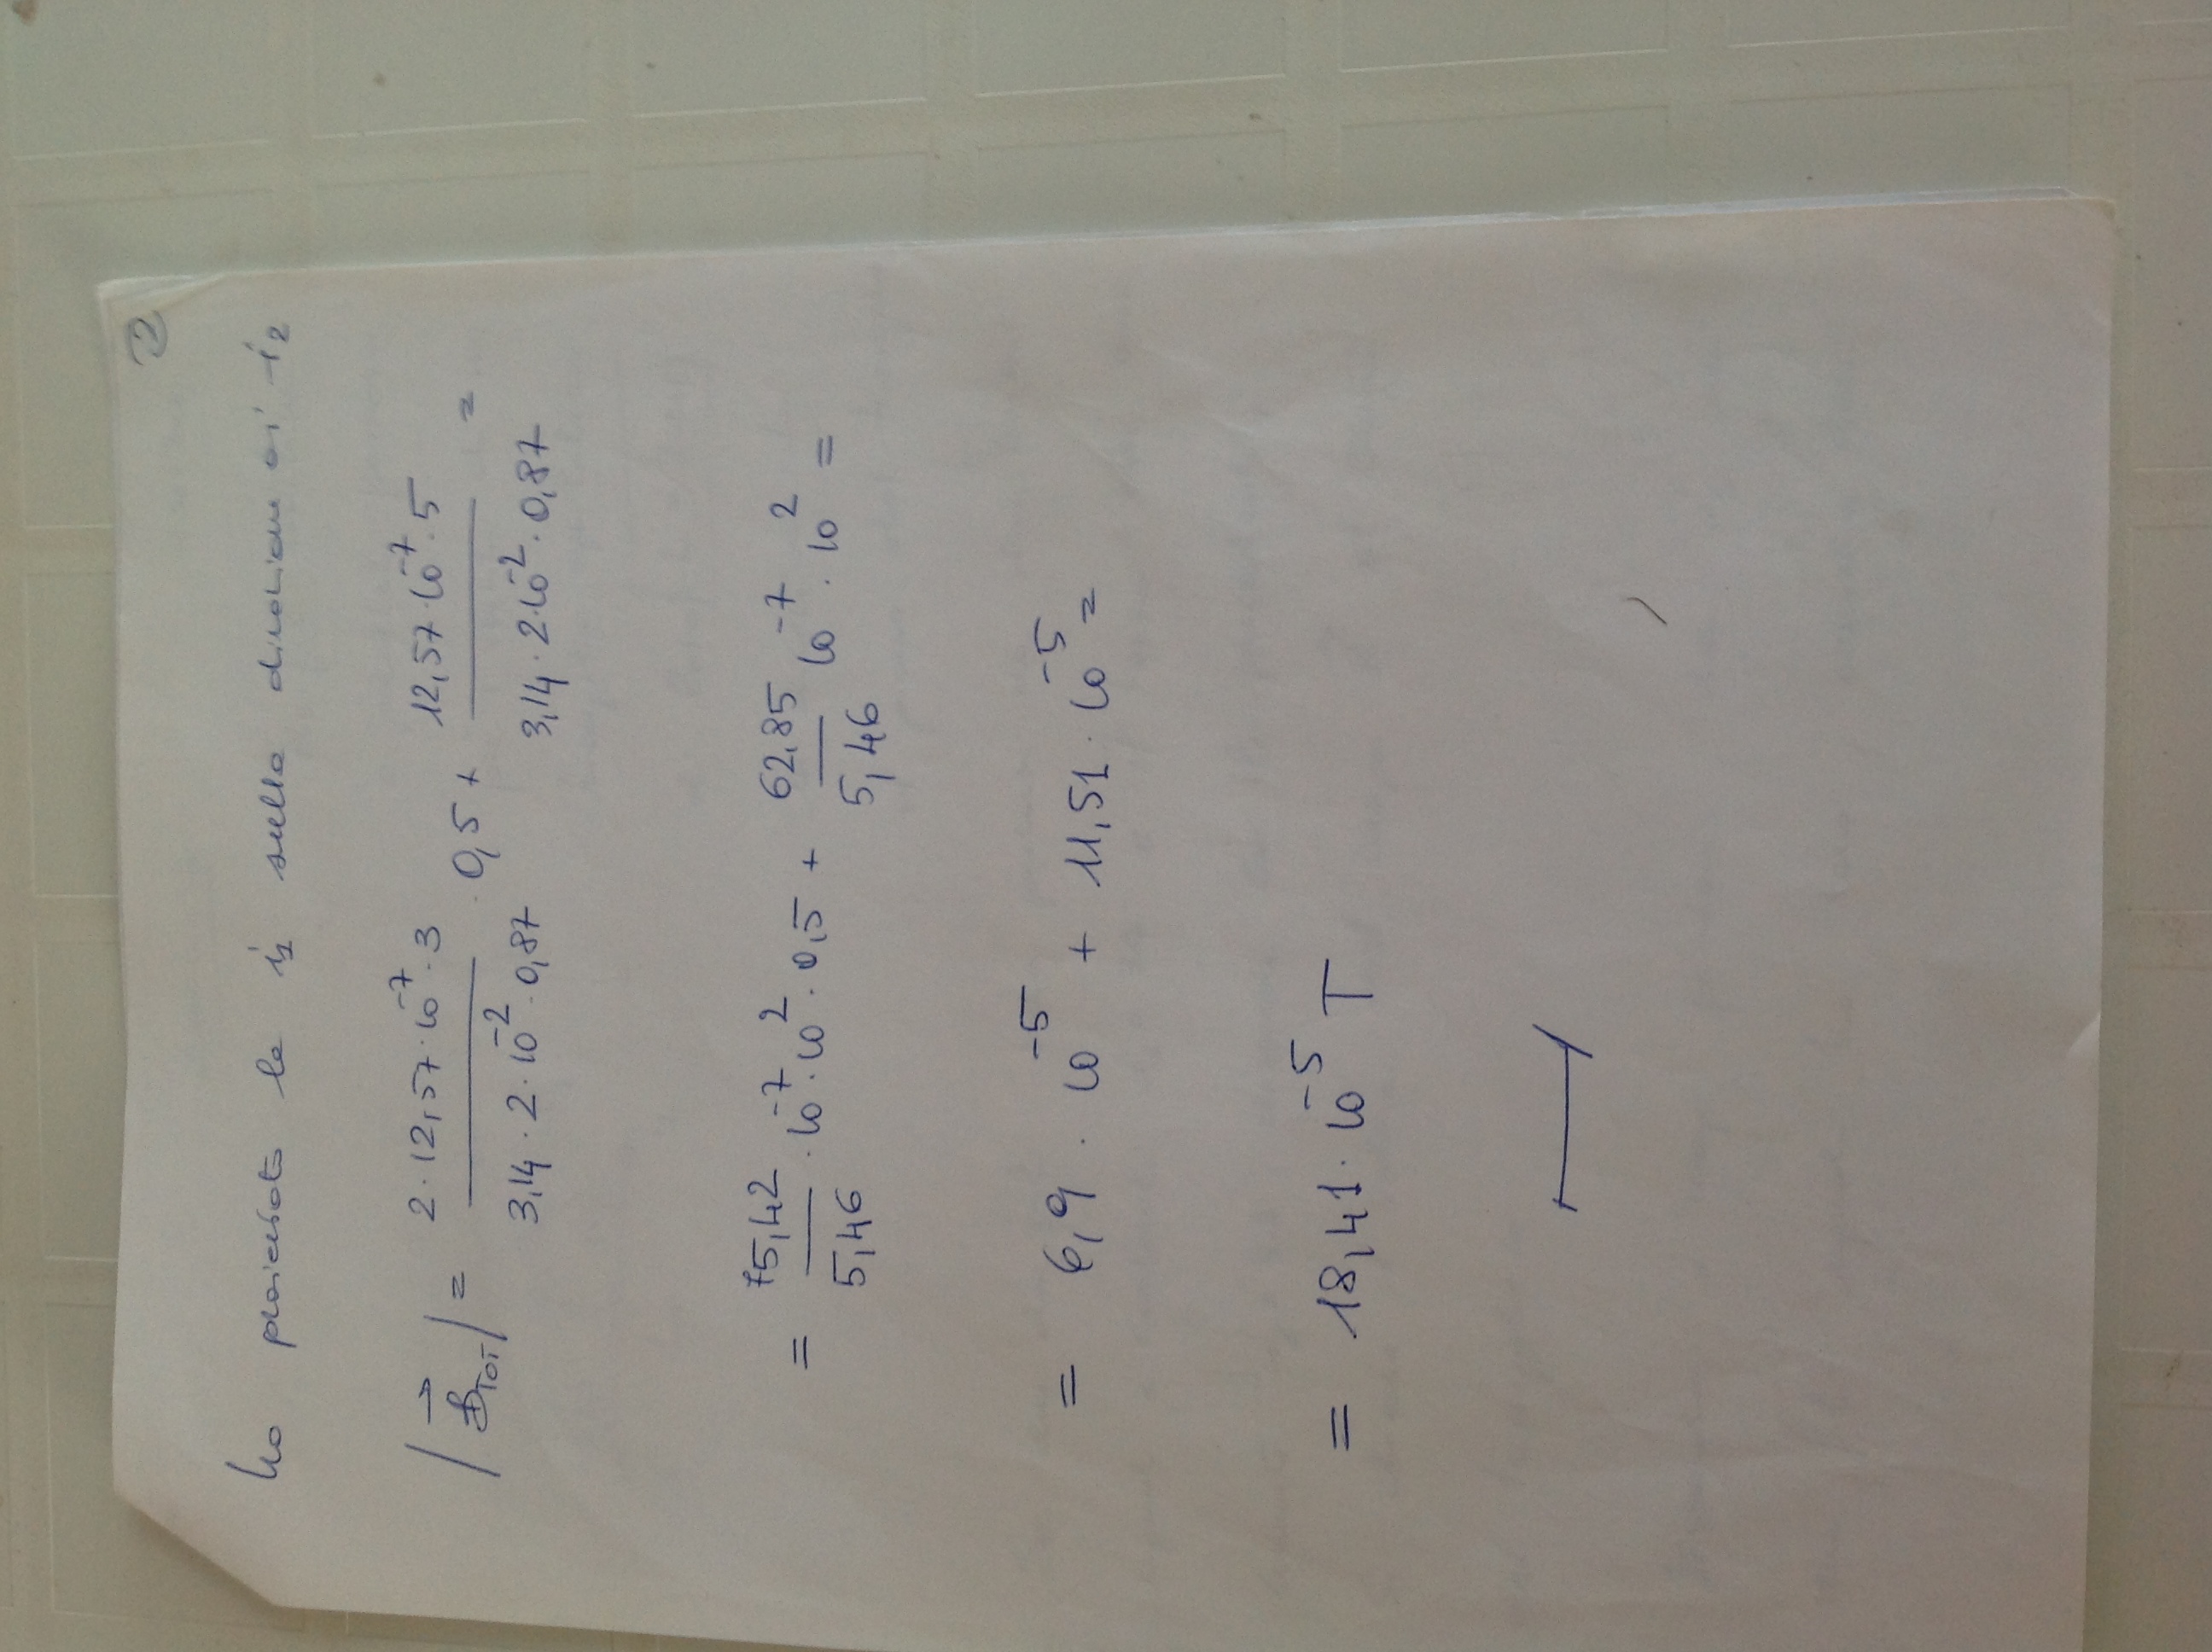 2
ho proiettato le i₁ sulla direzione di i₂
|B⃗_TOT| = (2·12,57·10⁻⁷·3)/(3,14·2·10⁻²·0,87) · 0,5 + (12,57·10⁻⁷·5)/(3,14·2·10⁻²·0,87) =
= 75,42/5,46 · 10⁻⁷·10²·0,5 + 62,85/5,46 10⁻⁷·10² =
= 6,9 · 10⁻⁵ + 11,51·10⁻⁵ =
= 18,41·10⁻⁵ T